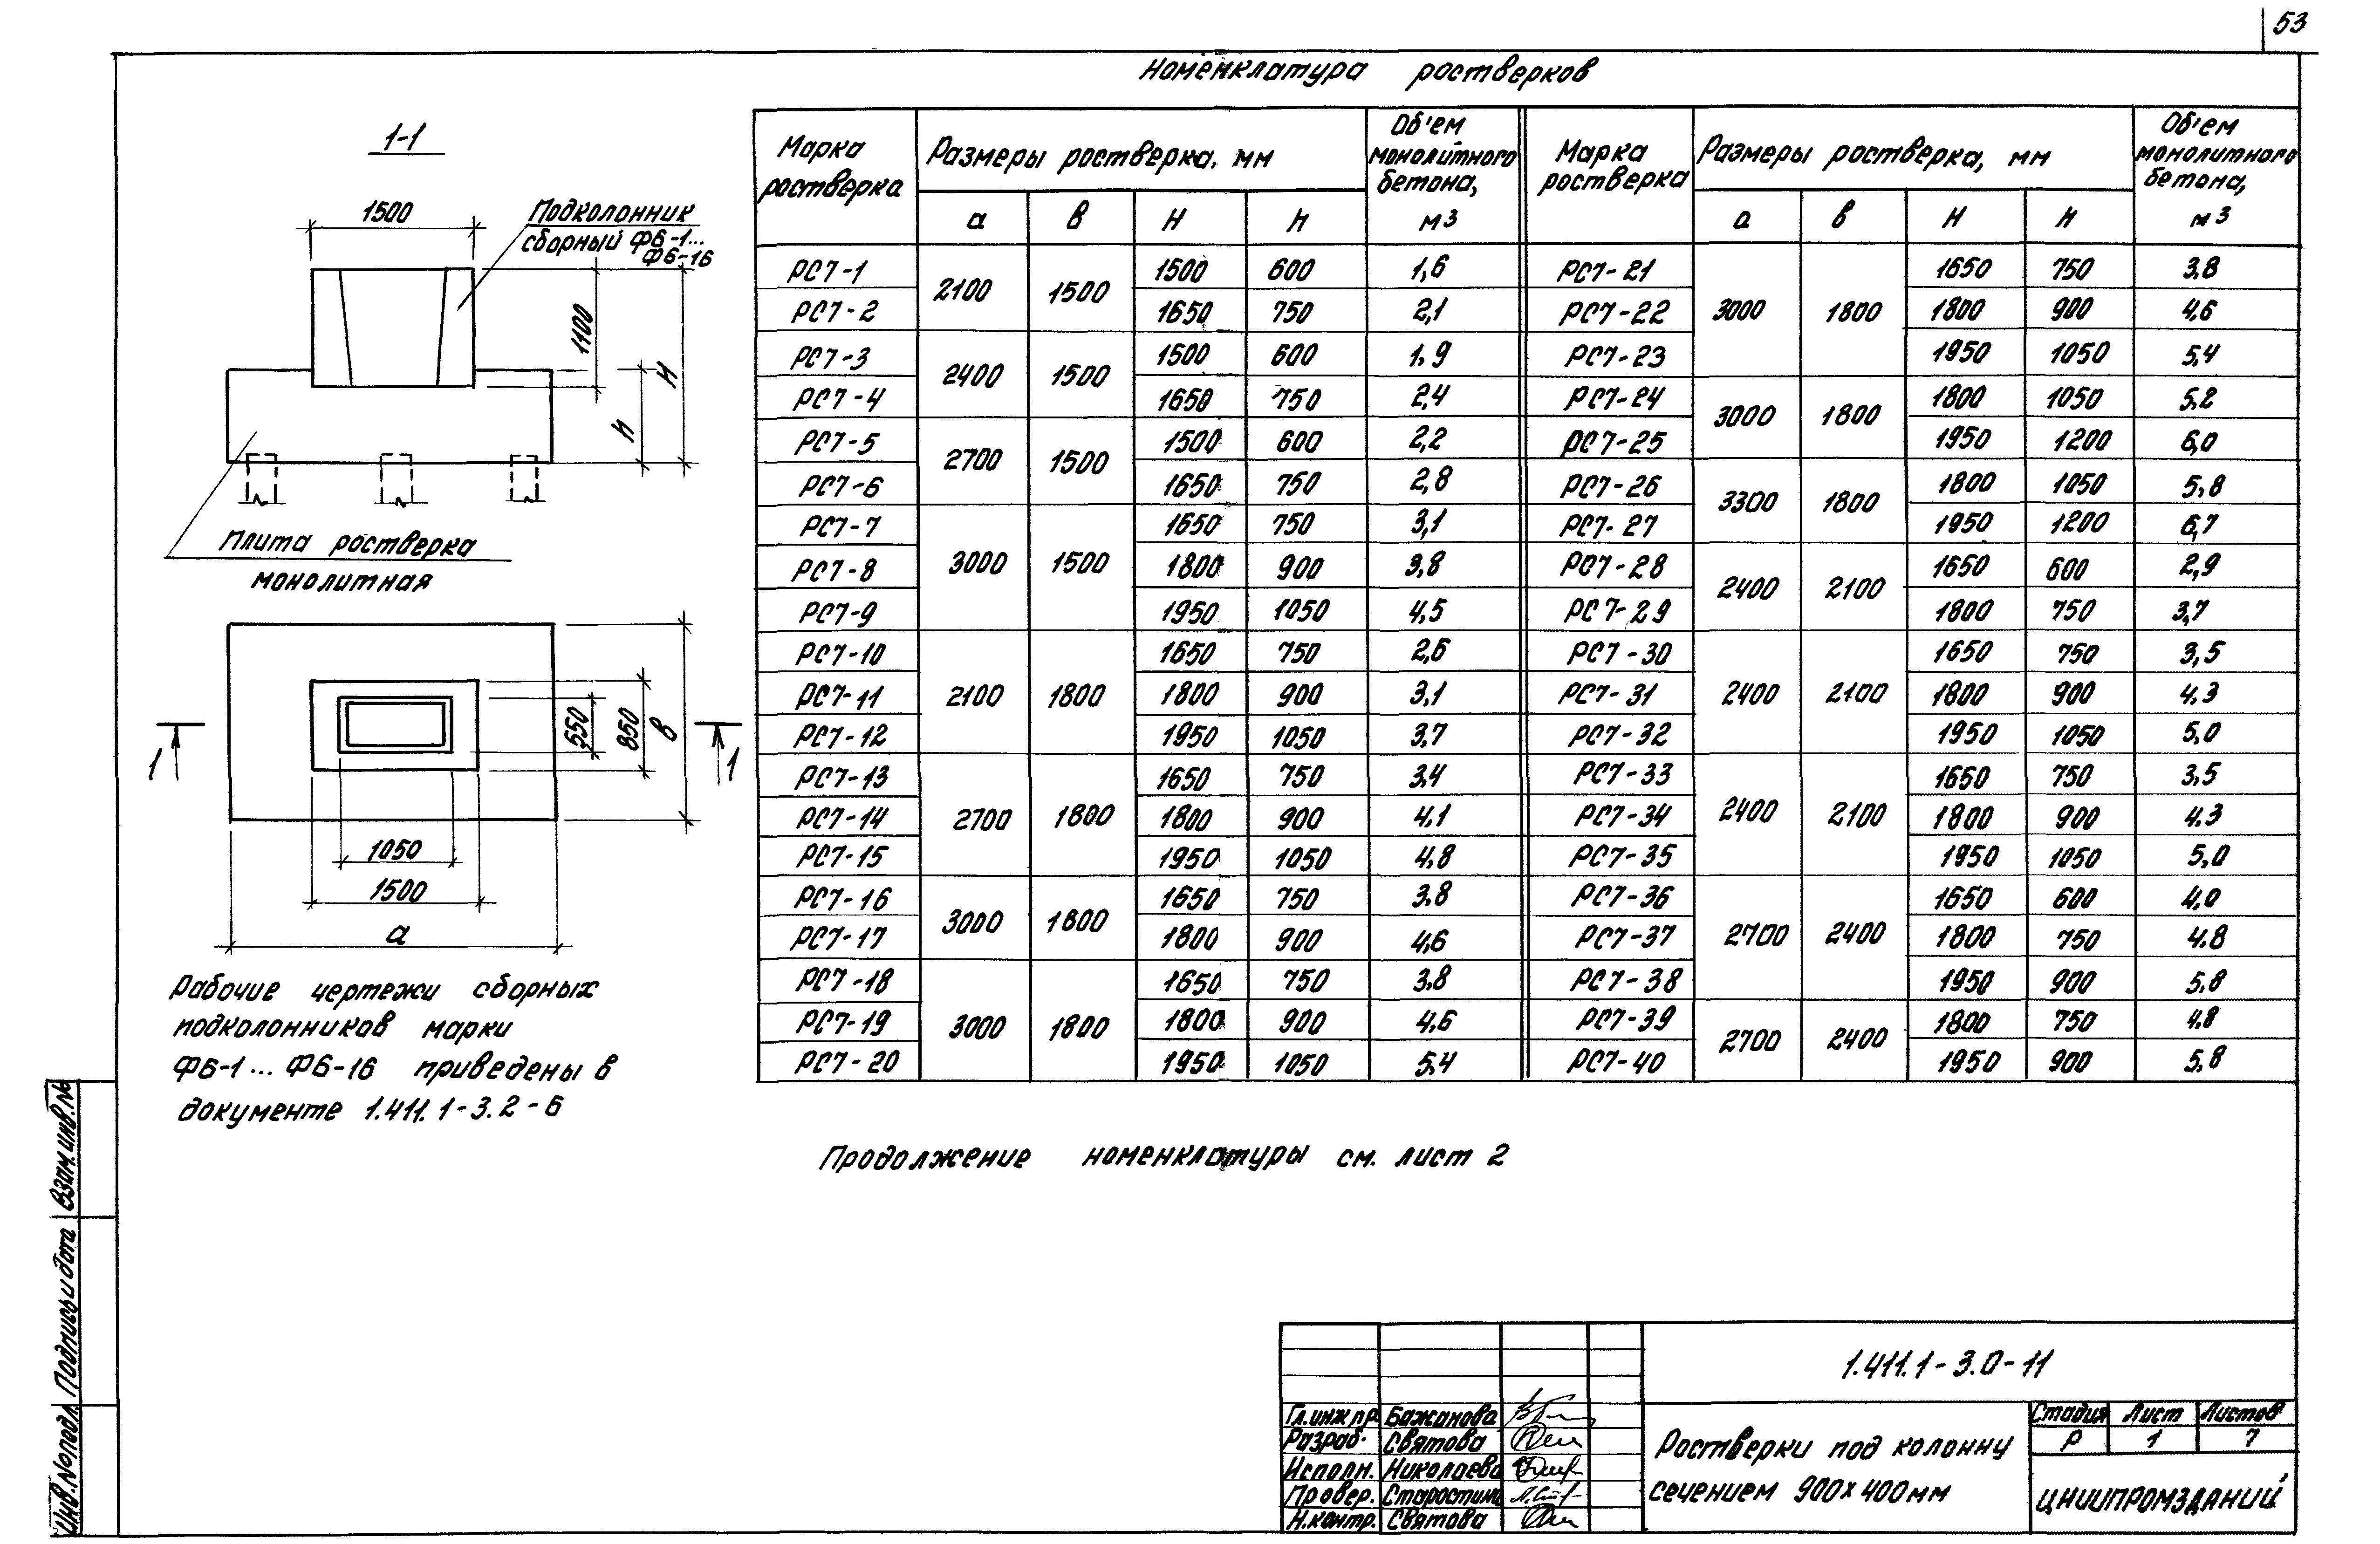 53
Номенклатура ростверков
1-1
1500
Подколонник
сборный ФБ-1...
ФБ-16
1100
Н
h
Плита ростверка
монолитная
550
850
в
1
1
1050
1500
а
Рабочие чертежи сборных
подколонников марки
ФБ-1... ФБ-16 приведены в
документе 1.411.1-3.2-6
Марка ростверка | Размеры ростверка, мм | Об'ем монолитного бетона, м3 | Марка ростверка | Размеры ростверка, мм | Об'ем монолитного бетона, м3
а в Н h а в Н h
РС7-1 2100 1500 1500 600 1,6 РС7-21 3000 1800 1650 750 3,8
РС7-2 1650 750 2,1 РС7-22 1800 900 4,6
РС7-3 2400 1500 1500 600 1,9 РС7-23 1950 1050 5,4
РС7-4 1650 750 2,4 РС7-24 3000 1800 1800 1050 5,2
РС7-5 2700 1500 1500 600 2,2 РС7-25 1950 1200 6,0
РС7-6 1650 750 2,8 РС7-26 3300 1800 1800 1050 5,8
РС7-7 3000 1500 1650 750 3,1 РС7-27 1950 1200 6,7
РС7-8 1800 900 3,8 РС7-28 2400 2100 1650 600 2,9
РС7-9 1950 1050 4,5 РС7-29 1800 750 3,7
РС7-10 2100 1800 1650 750 2,6 РС7-30 2400 2100 1650 750 3,5
РС7-11 1800 900 3,1 РС7-31 1800 900 4,3
РС7-12 1950 1050 3,7 РС7-32 1950 1050 5,0
РС7-13 2700 1800 1650 750 3,4 РС7-33 2400 2100 1650 750 3,5
РС7-14 1800 900 4,1 РС7-34 1800 900 4,3
РС7-15 1950 1050 4,8 РС7-35 1950 1050 5,0
РС7-16 3000 1800 1650 750 3,8 РС7-36 2700 2400 1650 600 4,0
РС7-17 1800 900 4,6 РС7-37 1800 750 4,8
РС7-18 3000 1800 1650 750 3,8 РС7-38 1950 900 5,8
РС7-19 1800 900 4,6 РС7-39 2700 2400 1800 750 4,8
РС7-20 1950 1050 5,4 РС7-40 1950 900 5,8
Продолжение номенклатуры см. лист 2
Взам.инв.№
Подпись и дата
Инв.№подл.
1.411.1-3.0-11
Гл.инж пр Бажанова
Разраб. Святова
Исполн. Николаева
Провер. Старостина
Н.контр. Святова
Ростверки под колонну
сечением 900х400мм
Стадия Лист Листов
Р 1 7
ЦНИИПРОМЗДАНИЙ